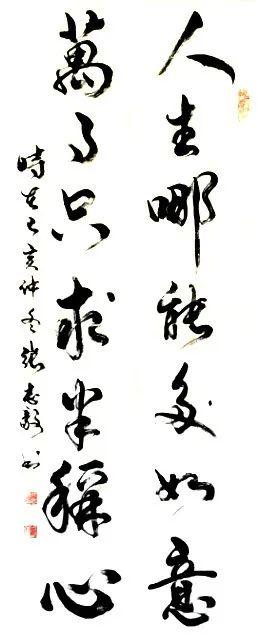 人生哪能多如意
萬事只求半稱心
時在己亥仲冬張志毅書